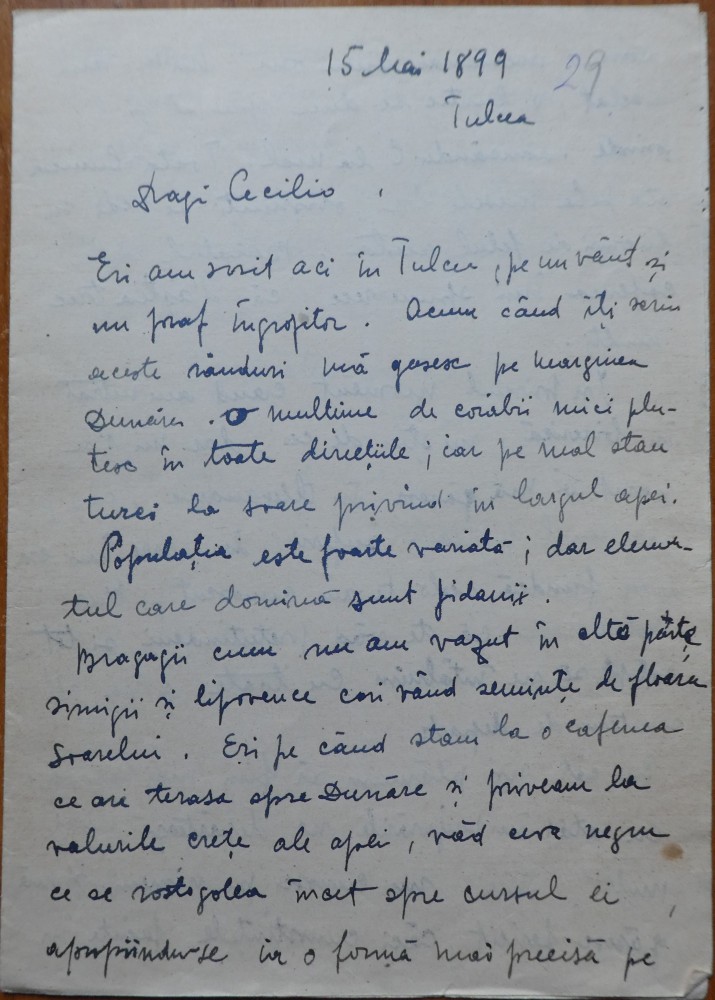 15 Mai 1899 29
Tulcea
Dragi Cecilio,
Eri am sosit aci în Tulcea, pe un vânt și
un praf îngrozitor. Acum când îți scriu
aceste rânduri mă gasesc pe marginea
Dunărei. O multime de corabii mici plu-
tesc în toate direcțiile; iar pe mal stau
turci la soare privind în largul apei.
Populația este foarte variată; dar elemen-
tul care domină sunt jidanii.
Bragagii cum nu am vazut în altă parte,
simigii și lipovence cari vând semințe de floarea
soarelui. Eri pe când stam la o cafenea
ce are terasa spre Dunăre și priveam la
valurile crețe ale apei, văd ceva negru
ce se rostogolea încet spre cursul ei,
apropiindu-se ia o formă mai precisă pe